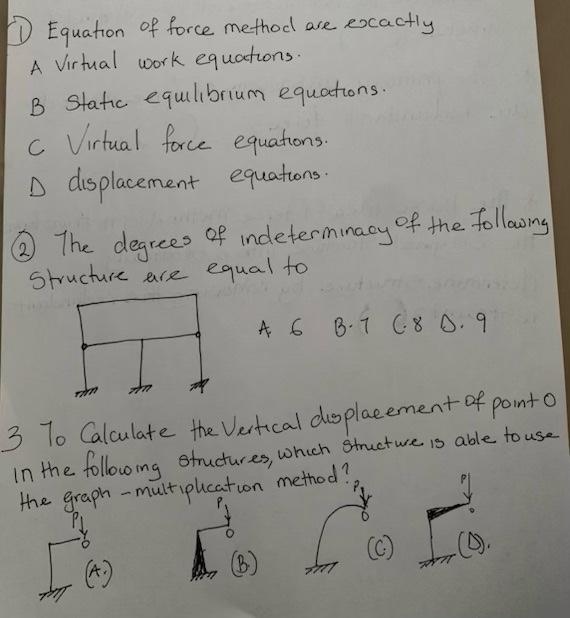 ① Equation of force method are excactly
A Virtual work equations.
B Static equilibrium equations.
C Virtual force equations.
D displacement equations.
② The degrees of indeterminacy of the following
Structure are equal to
A 6 B. 7 C. 8 D. 9
3 To Calculate the Vertical displacement of point O
in the following structures, which structure is able to use
the graph - multiplication method?
P O (A.)
P O (B.)
P O (C)
P O (D).